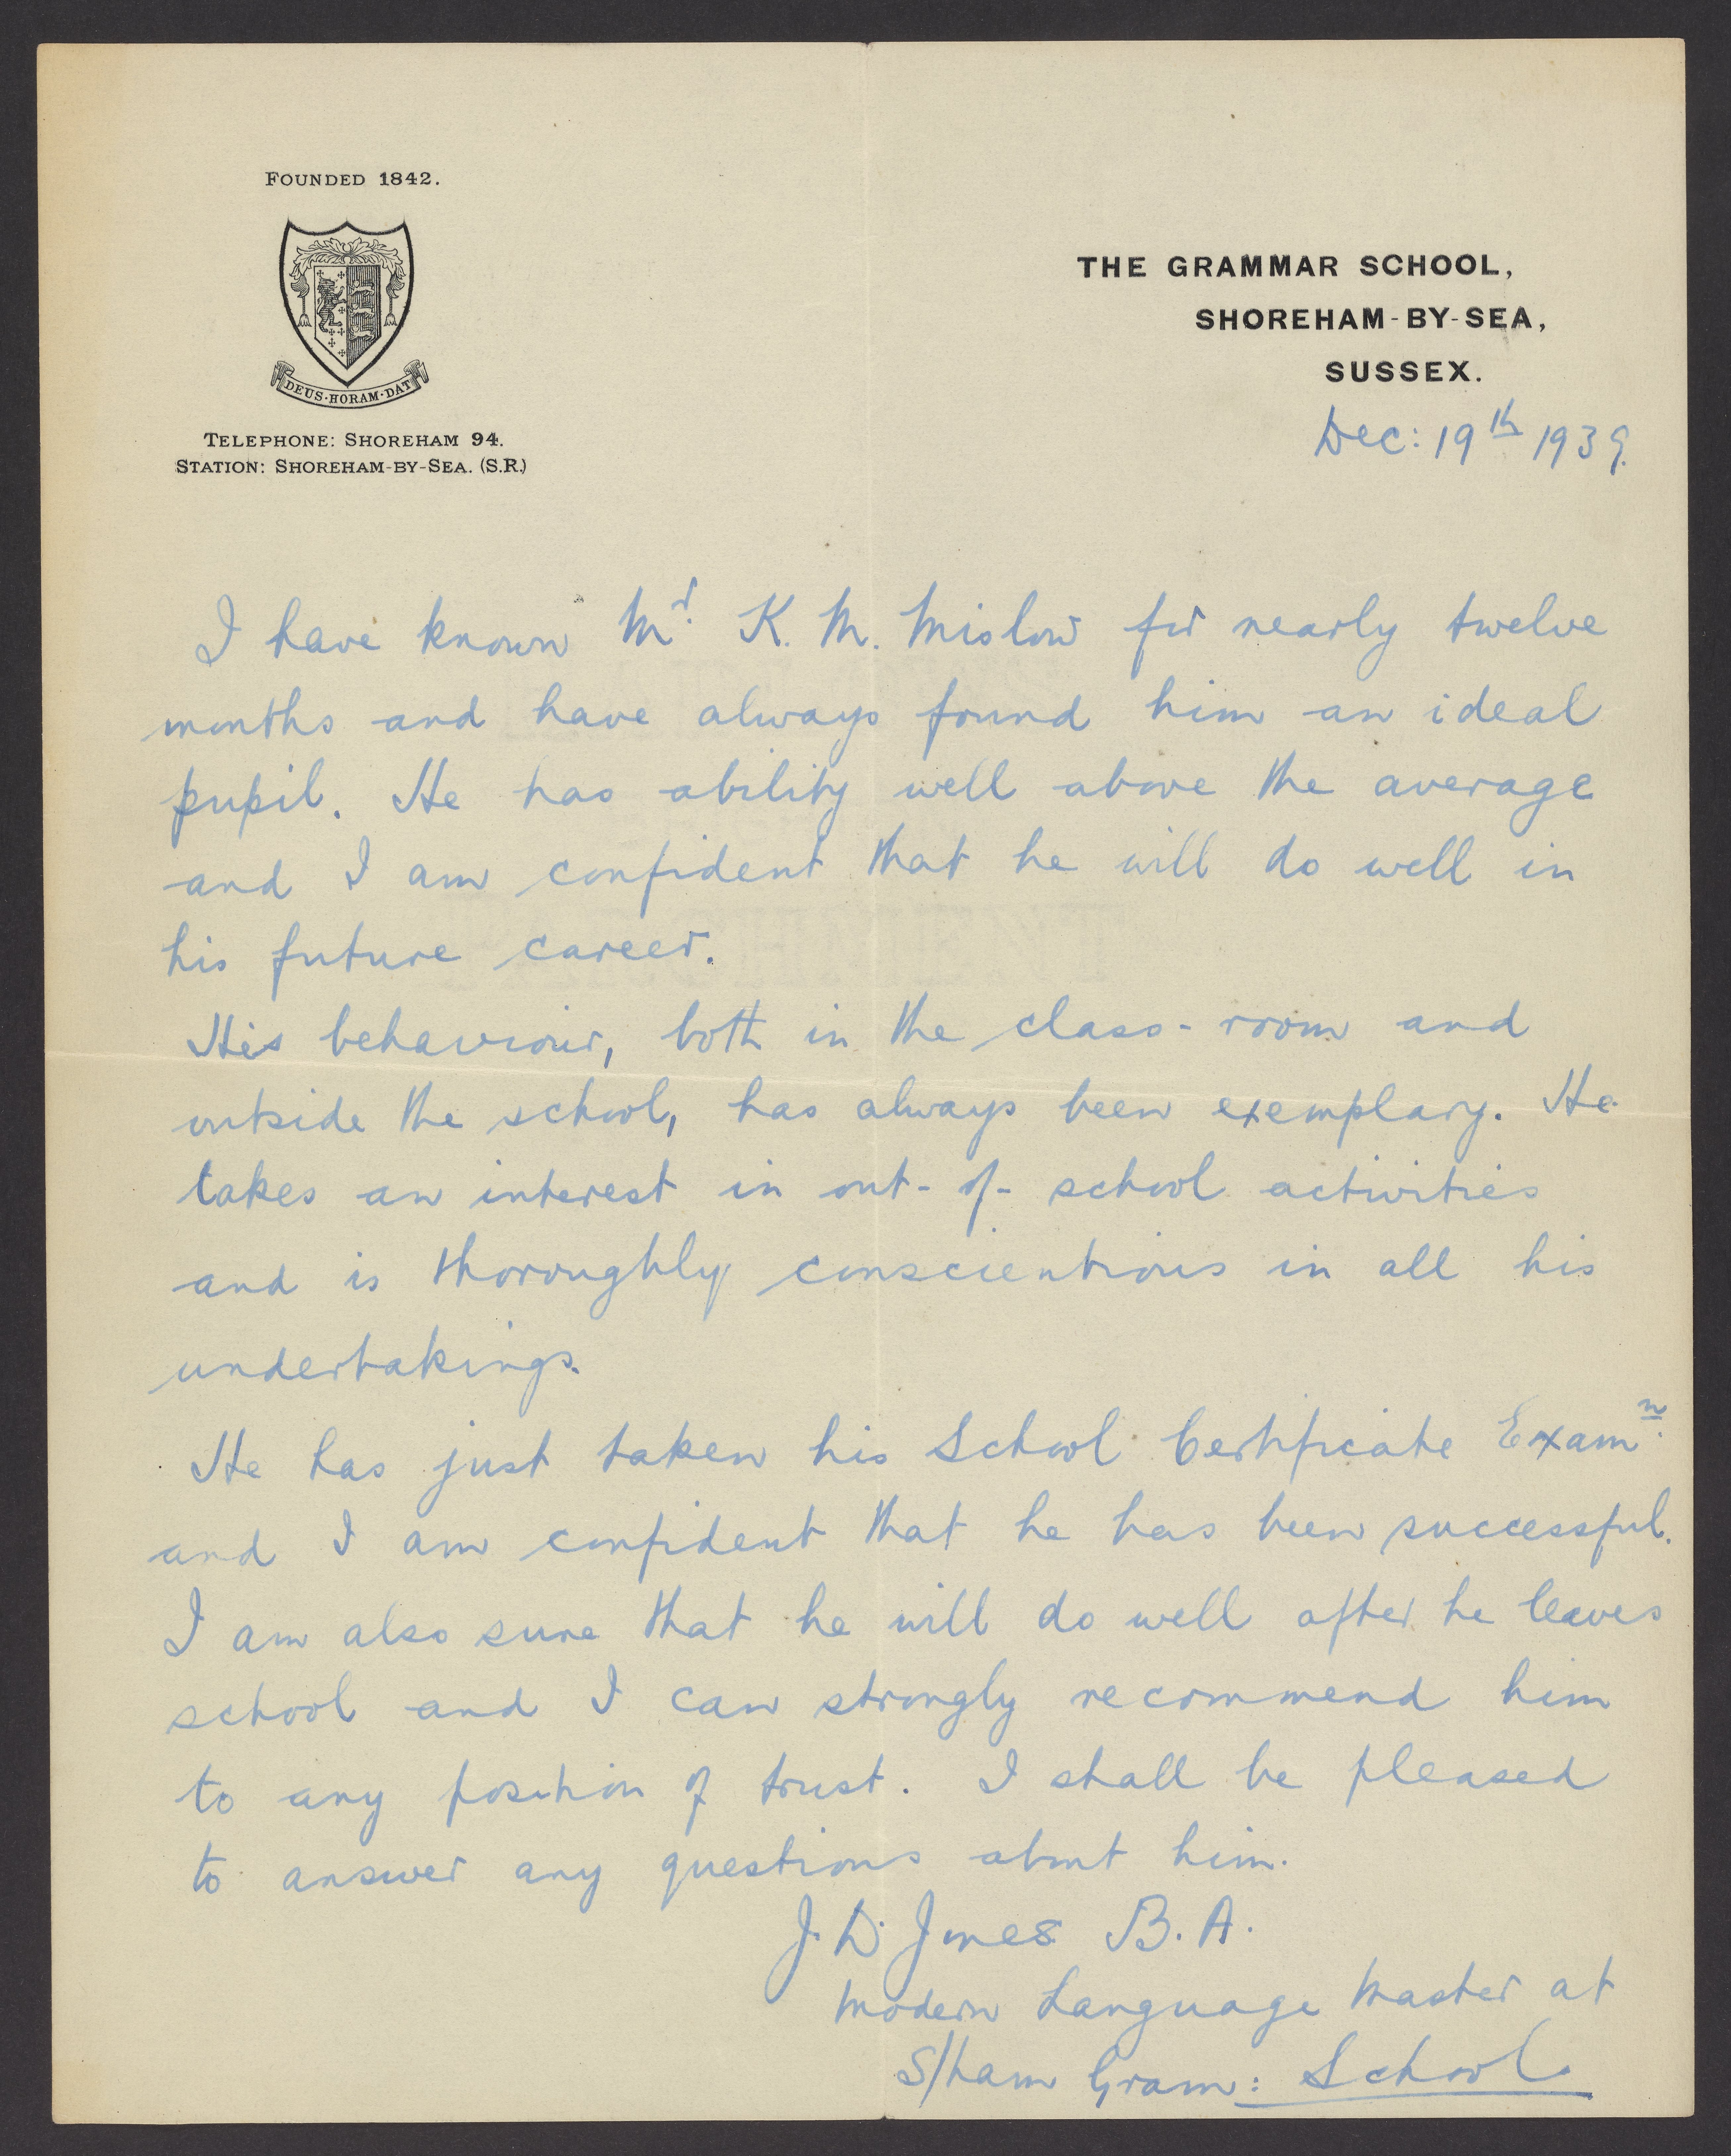 FOUNDED 1842.
DEUS·HORAM·DAT
TELEPHONE: SHOREHAM 94.
STATION: SHOREHAM-BY-SEA. (S.R.)
THE GRAMMAR SCHOOL,
SHOREHAM-BY-SEA,
SUSSEX.
Dec: 19th 1939.
I have known Mr. K. M. Mislow for nearly twelve
months and have always found him an ideal
pupil. He has ability well above the average
and I am confident that he will do well in
his future career.
His behaviour, both in the class-room and
outside the school, has always been exemplary. He
takes an interest in out-of-school activities
and is thoroughly conscientious in all his
undertakings.
He has just taken his School Certificate Examn.
and I am confident that he has been successful.
I am also sure that he will do well after he leaves
school and I can strongly recommend him
to any position of trust. I shall be pleased
to answer any questions about him.
J. D. Jones B.A.
Modern Language Master at
S/ham Gram: School